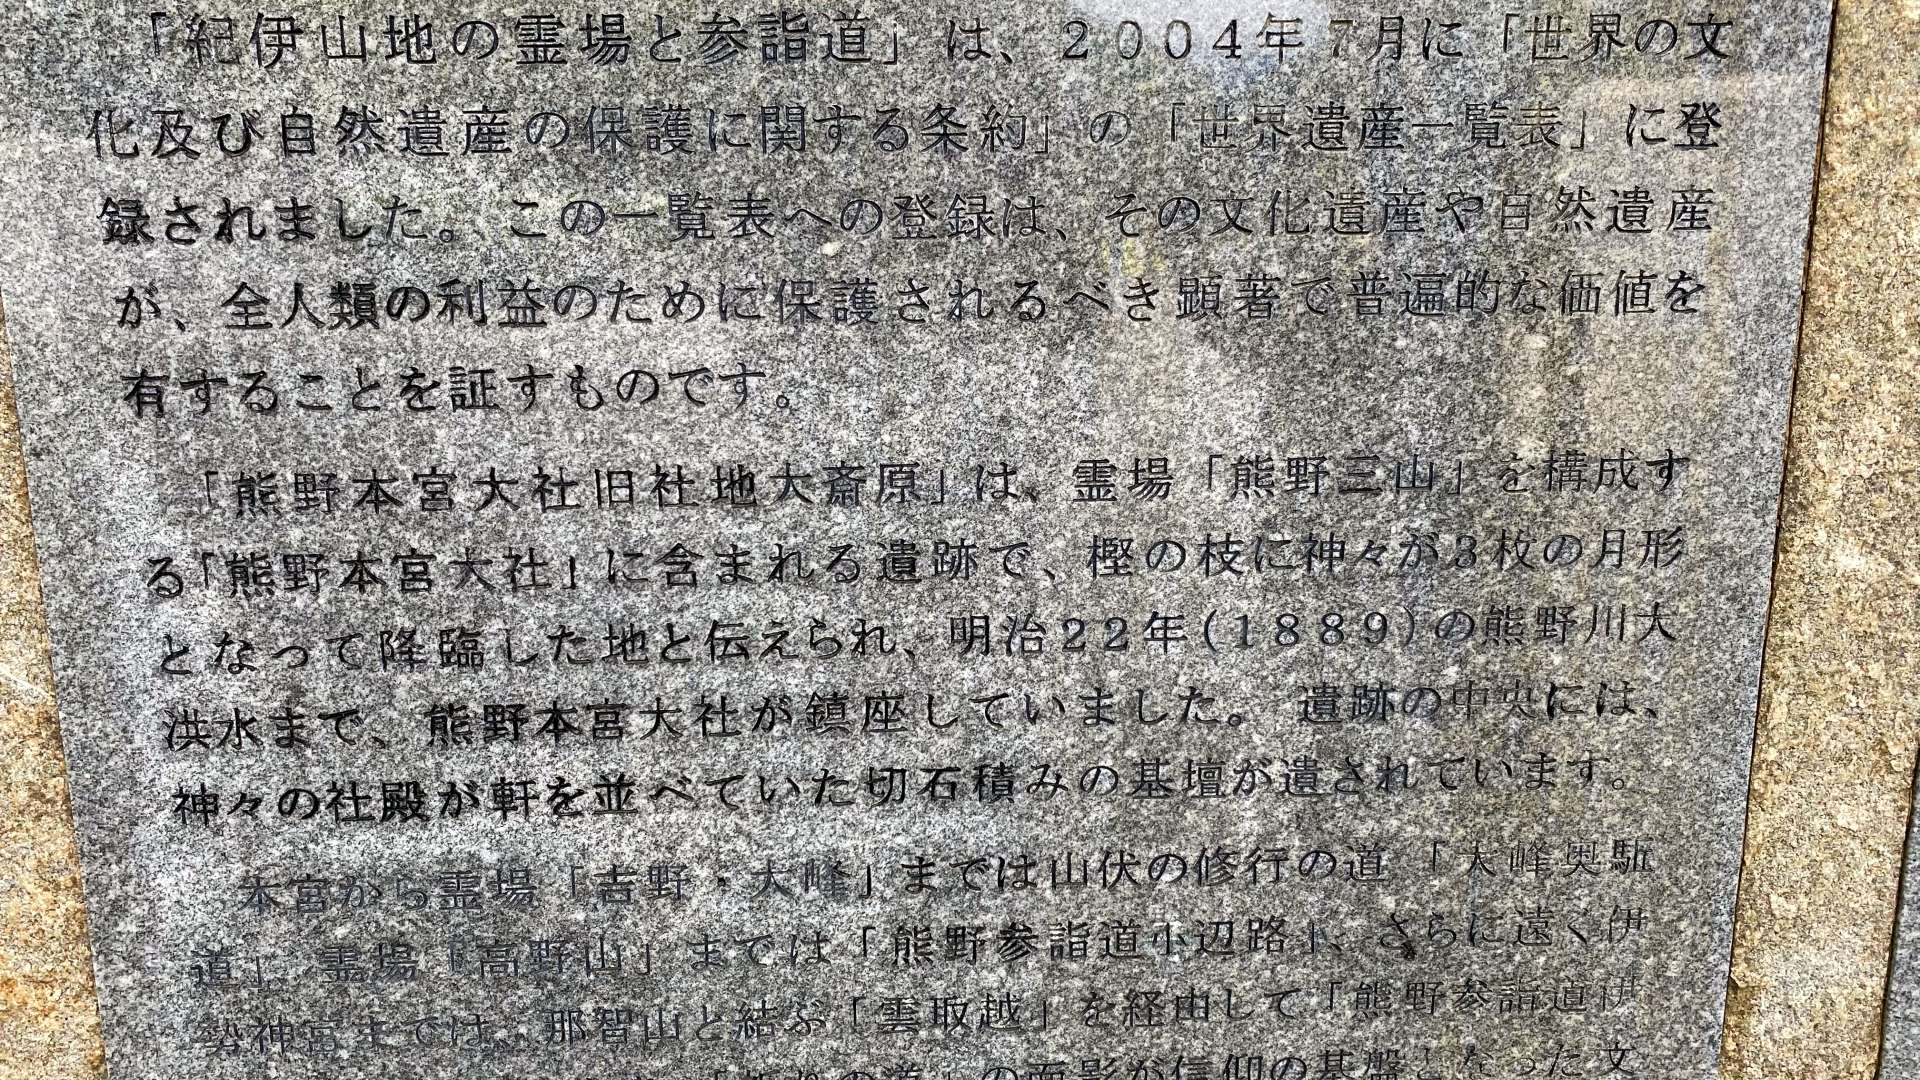 「紀伊山地の霊場と参詣道」は、２００４年７月に「世界の文
化及び自然遺産の保護に関する条約」の「世界遺産一覧表」に登
録されました。この一覧表への登録は、その文化遺産や自然遺産
が、全人類の利益のために保護されるべき顕著で普遍的な価値を
有することを証すものです。
「熊野本宮大社旧社地大斎原」は、霊場「熊野三山」を構成す
る「熊野本宮大社」に含まれる遺跡で、樫の枝に神々が３枚の月形
となって降臨した地と伝えられ、明治２２年(１８８９)の熊野川大
洪水まで、熊野本宮大社が鎮座していました。遺跡の中央には、
神々の社殿が軒を並べていた切石積みの基壇が遺されています。
本宮から霊場「吉野・大峰」までは山伏の修行の道「大峰奥駈
道」、霊場「高野山」までは「熊野参詣道小辺路」、さらに遠く伊
勢神宮までは、那智山と結ぶ「雲取越」を経由して「熊野参詣道伊
の面影が信仰の基盤となった文